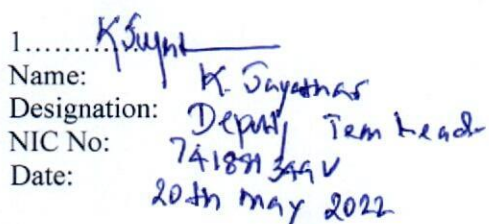 1..............
Name: K. Jayathas
Designation: Deputy Team Leader
NIC No:
Date: 20th May 2022